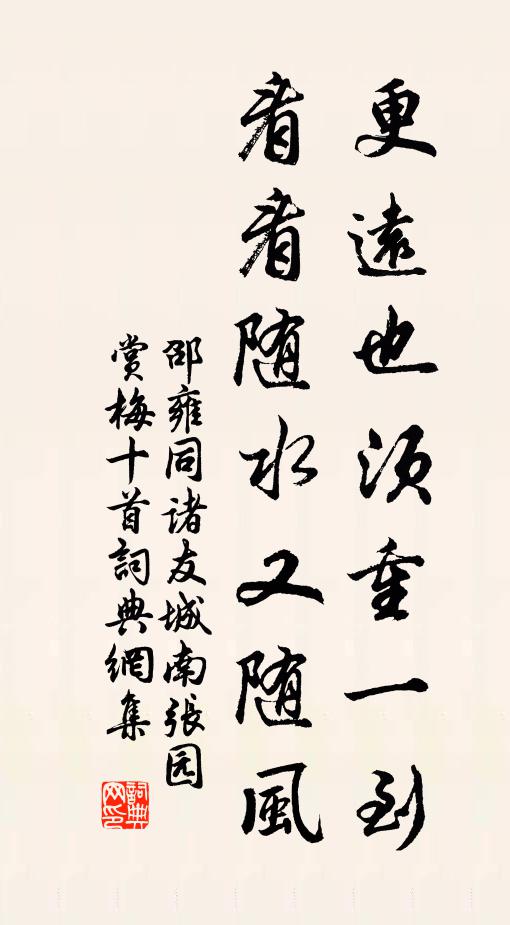 更遠也須重一到
看看随水又随風
邵雍同诸友城南張园
賞梅十首詞典網集
詞典
网印